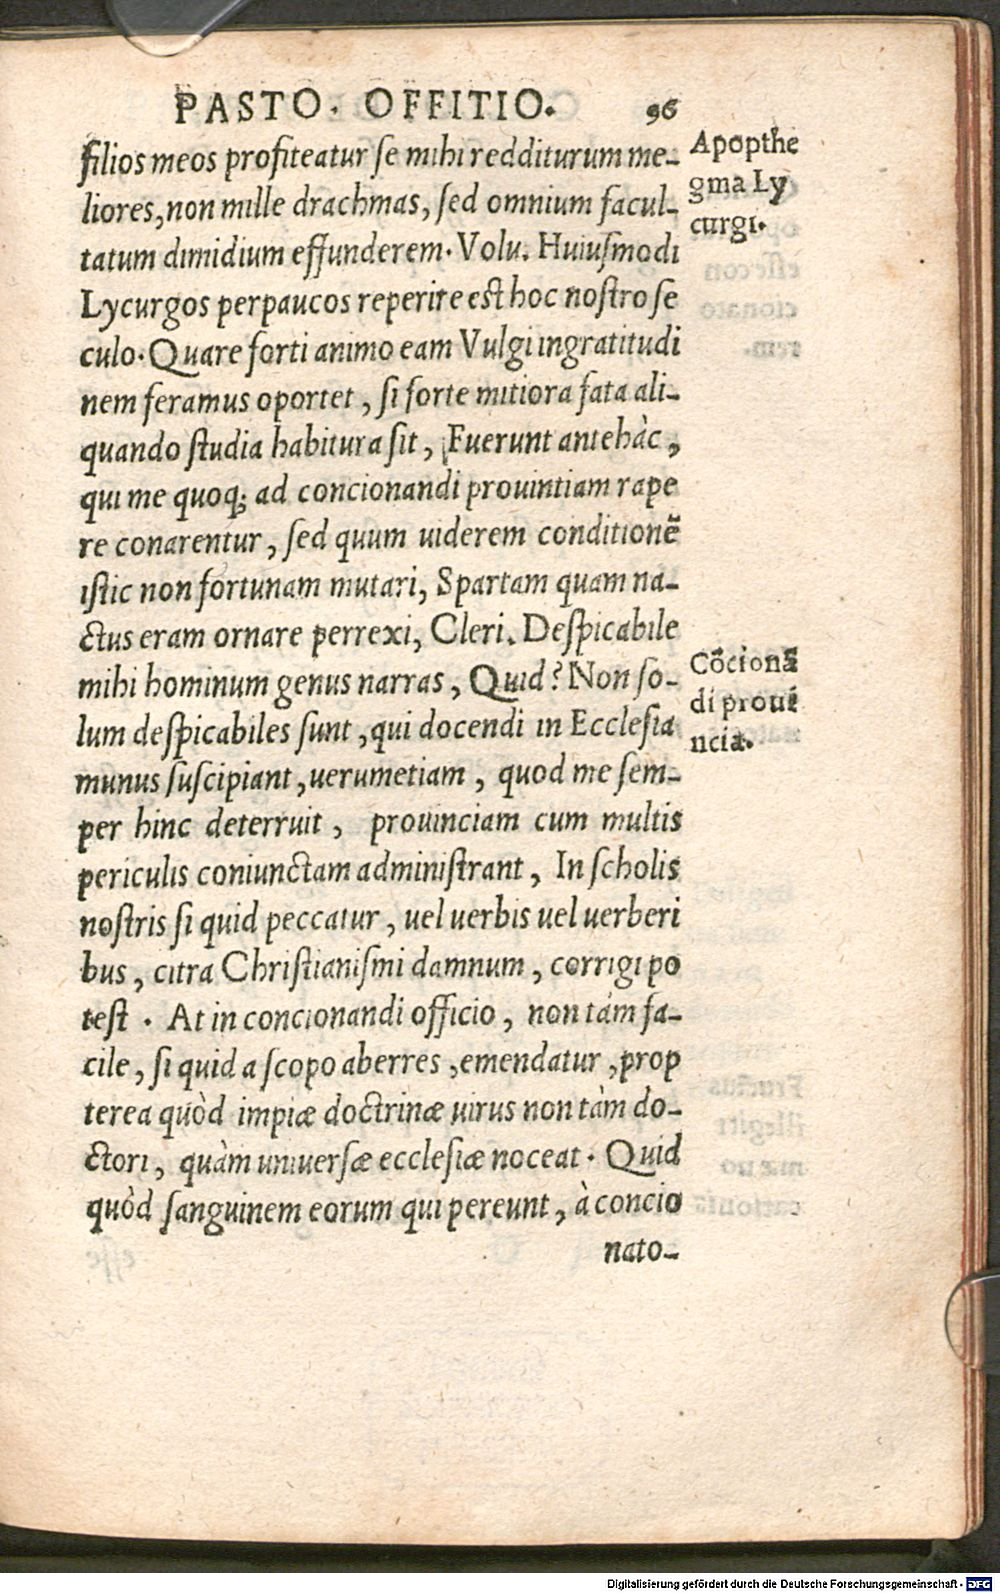 PASTO. OFFITIO. 96
filios meos profiteatur se mihi redditurum me-
liores, non mille drachmas, sed omnium facul-
tatum dimidium effunderem. Volu. Huiusmodi
Lycurgos perpaucos reperire est hoc nostro se
culo. Quare forti animo eam Vulgi ingratitudi
nem feramus oportet, si forte mitiora fata ali-
quando studia habitura sit, Fuerunt antehàc,
qui me quoq; ad concionandi prouintiam rape
re conarentur, sed quum uiderem conditionē
istic non fortunam mutari, Spartam quam na-
ctus eram ornare perrexi, Cleri. Despicabile
mihi hominum genus narras, Quid? Non so-
lum despicabiles sunt, qui docendi in Ecclesia
munus suscipiant, uerumetiam, quod me sem-
per hinc deterruit, prouinciam cum multis
periculis coniunctam administrant, In scholis
nostris si quid peccatur, uel uerbis uel uerberi
bus, citra Christianismi damnum, corrigi po
test. At in concionandi officio, non tàm fa-
cile, si quid a scopo aberres, emendatur, prop
terea quòd impiæ doctrinæ uirus non tàm do-
ctori, quàm uniuersæ ecclesiæ noceat. Quid
quòd sanguinem eorum qui pereunt, à concio
nato-
Apopthe
gma Ly
curgi.
Cōcionā
di prouī
ncia.
Digitalisierung gefördert durch die Deutsche Forschungsgemeinschaft - DFG